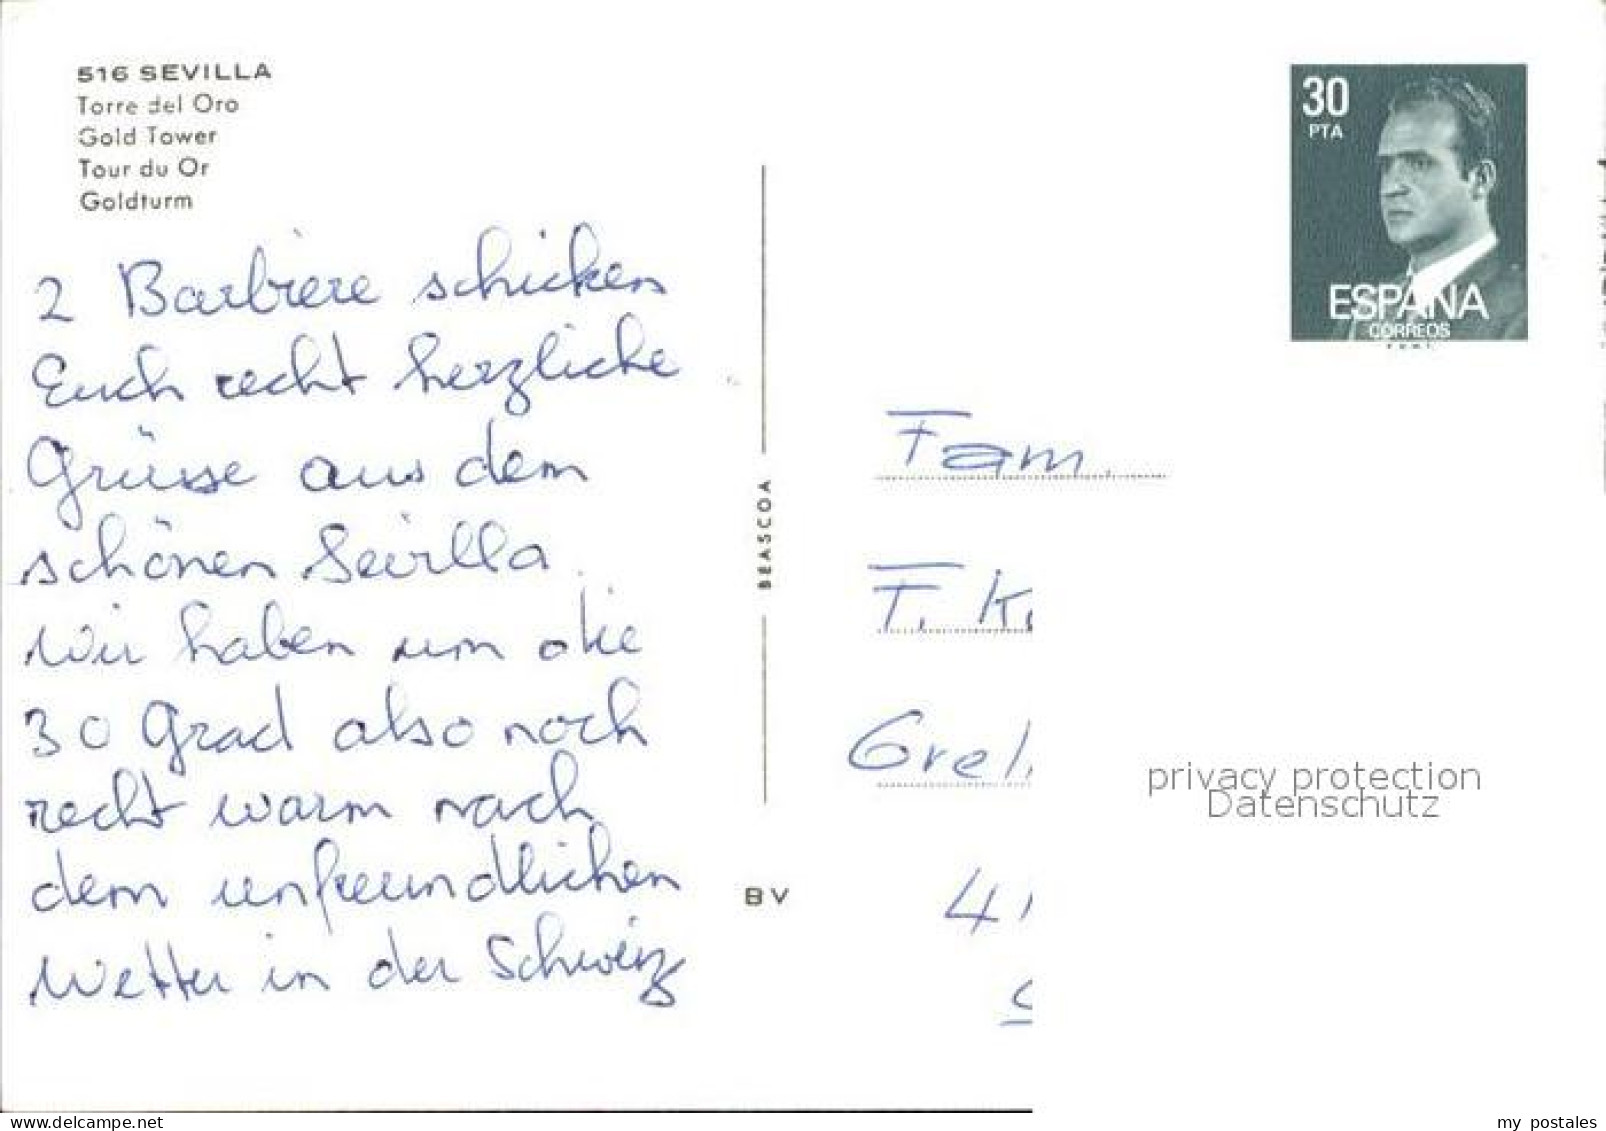 516 SEVILLA
Torre del Oro
Gold Tower
Tour du Or
Goldturm
2 Barbiere schicken
Euch recht herzliche
Grüsse aus dem
schönen Sevilla.
Wir haben um die
30 Grad also noch
recht warm nach
dem unfreundlichen
Wetter in der Schweiz
BEASCOA
BV
30
PTA
ESPAÑA
CORREOS
F.N.M.T.
Fam.
T. K
Grel
41
privacy protection
Datenschutz
delcampe.net
my postales